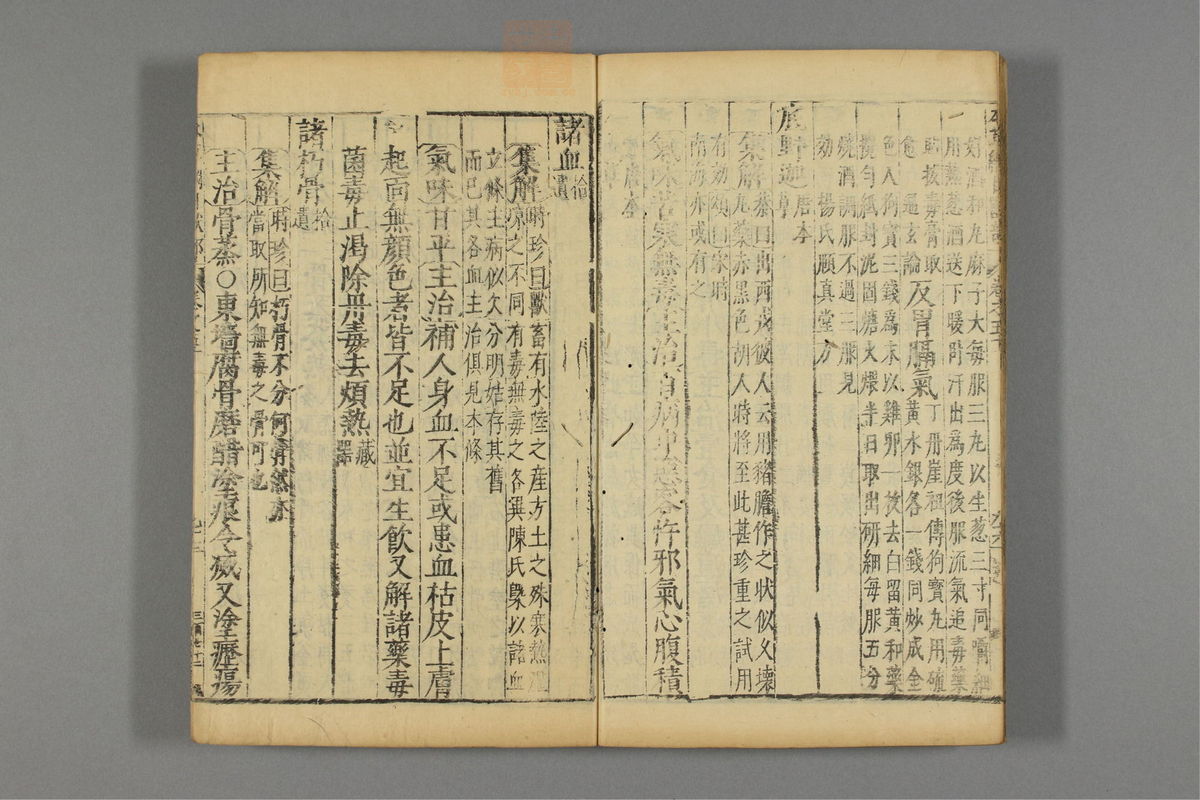 好酒和丸麻子大每服三丸以生葱三寸同嚼細
用熱葱酒送下暖卧汗出為度後服流氣追毒藥
取按毒膏取
愈 通玄論 反胃膈氣 丁丹崖祖傳狗寶丸用硫
黃水銀各一錢同炒成金
色入狗寶三錢為末以雞卵一枚去白留黃和藥
攪勻紙封泥固煻火煨半日取出研細每服五分
燒酒調服不過三服見
効 楊氏頤真堂方
底野迦 唐本草
集解 恭曰出西戎彼人云用豬膽作之狀似久壞
丸藥赤黑色胡人時將至此甚珍重之試用
有効頌曰宋時
南海亦或有之
氣味苦寒無毒主治百病中惡客忤邪氣心腹積
諸血 拾遺
集解 時珍曰獸畜有水陸之産方土之殊寒熱溫
凉之不同有毒無毒之各異陳氏槩以諸血
立條主病似欠分明姑存其舊
而已其各血主治俱見本條
氣味甘平主治補人身血不足或患血枯皮上膚
起面無顏色者皆不足也並宜生飲又解諸藥毒
菌毒止渴除丹毒去煩熱 藏器
諸朽骨 拾遺
集解 時珍曰朽骨不分何骨然亦
當取所知無毒之骨可也
主治骨蒸○東墻腐骨磨醋塗痕令滅又塗癧瘍